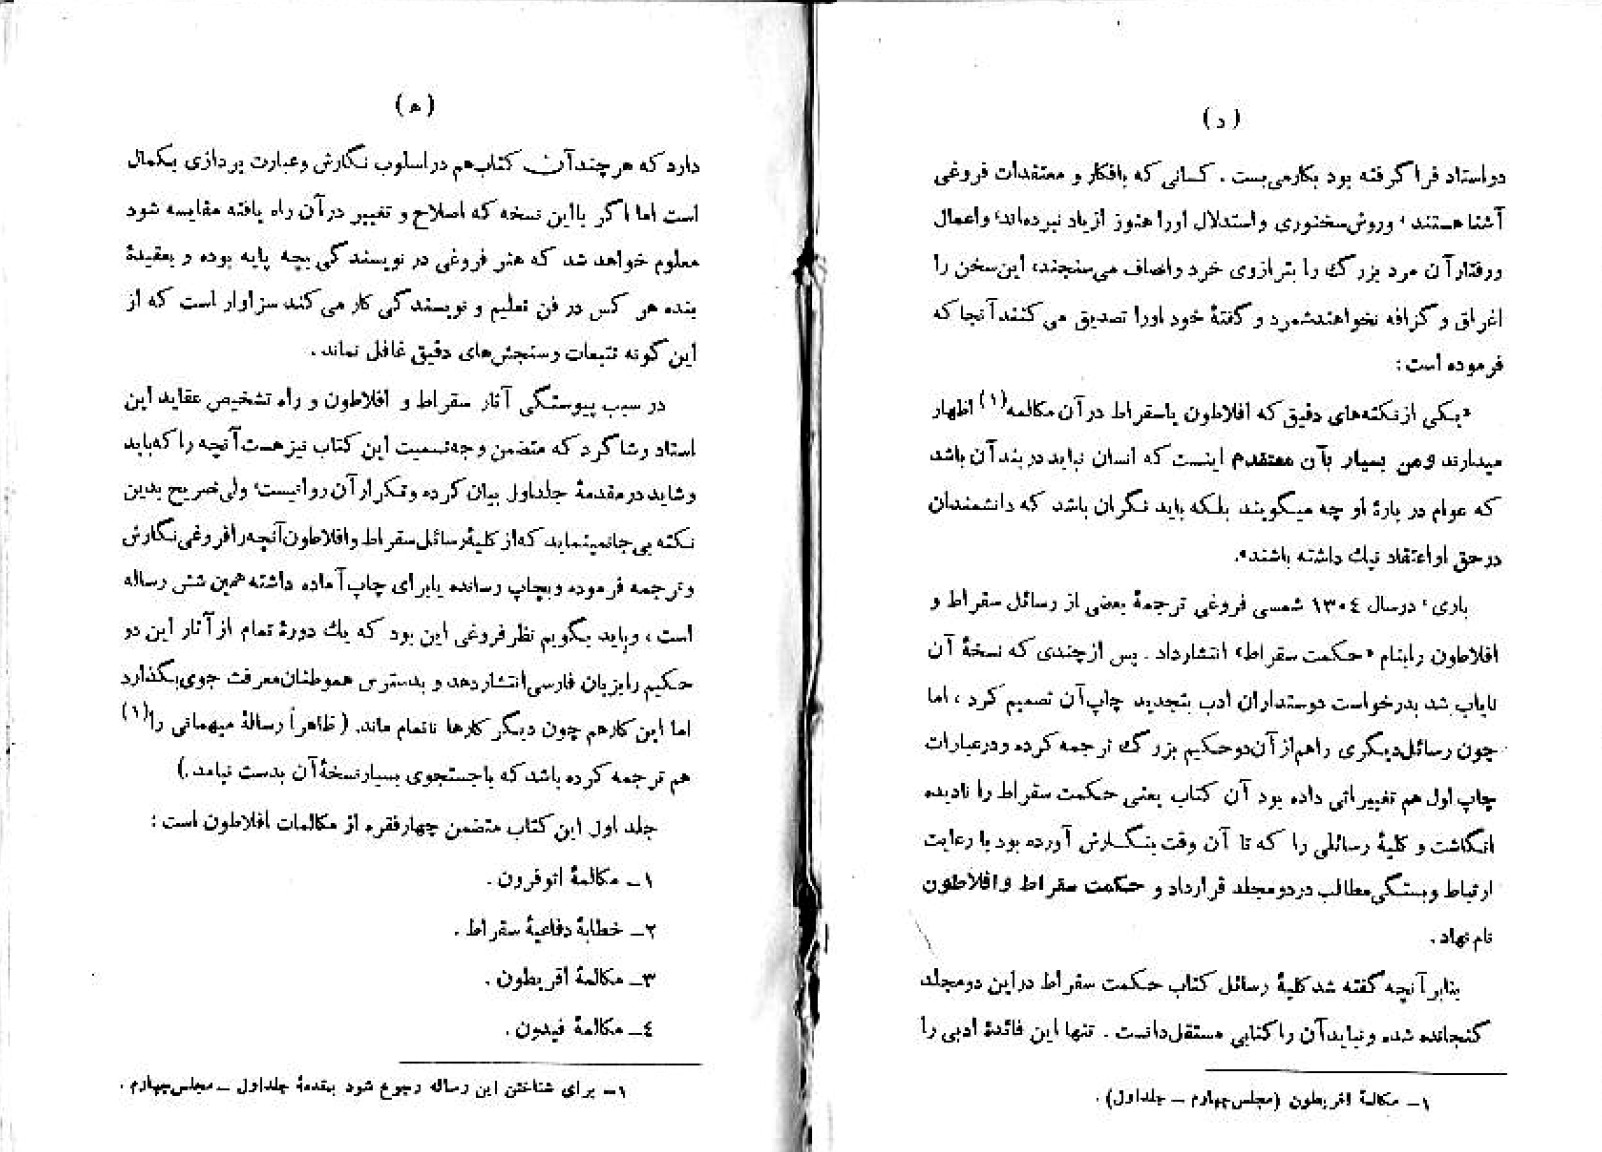 (د)
دراستاد فراگرفته بود بکارمی‌بست . کسانی که بافکار و معتقدات فروغی
آشنا هستند ، وروش سخنوری واستدلال اورا هنوز ازیاد نبرده‌اند، واعمال
ورفتار آن مرد بزرگ را بترازوی خرد وانصاف می‌سنجند، این سخن را
اغراق و گزافه نخواهند شمرد و گفتهٔ خود اورا تصدیق می‌کنند آنجا که
فرموده است :
«یکی از نکته‌های دقیق که افلاطون یا سقراط در آن مکالمه(۱) اظهار
میدارند ومن بسیار بآن معتقدم اینست که انسان نباید در بند آن باشد
که عوام در بارهٔ او چه میگویند بلکه باید نگران باشد که دانشمندان
درحق او اعتقاد نیك داشته باشند».
باری ، درسال ۱۳۰٤ شمسی فروغی ترجمهٔ بعضی از رسائل سقراط و
افلاطون رابنام «حکمت سقراط» انتشارداد . پس ازچندی که نسخهٔ آن
نایاب شد بدرخواست دوستداران ادب بتجدید چاپ آن تصمیم کرد ، اما
چون رسائل دیگری راهم از آن دوحکیم بزرگ ترجمه کرده ودرعبارات
چاپ اول هم تغییراتی داده بود آن کتاب یعنی حکمت سقراط را نادیده
انگاشت و کلیهٔ رسائلی را که تا آن وقت بنگارش آورده بود با رعایت
ارتباط وبستگی مطالب در دو مجلد قرارداد و حکمت سقراط و افلاطون
نام نهاد .
بنابر آنچه گفته شد کلیهٔ رسائل کتاب حکمت سقراط دراین دومجلد
گنجانده شده ونباید آن را کتابی مستقل دانست . تنها این فائدهٔ ادبی را
۱ــ مکالمهٔ اقریطون (مجلس چهارم ــ جلداول) .
(ه)
دارد که هر چند آن کتاب هم در اسلوب نگارش وعبارت پردازی بکمال
است اما اگر بااین نسخه که اصلاح و تغییر در آن راه یافته مقایسه شود
معلوم خواهد شد که هنر فروغی در نویسندگی بچه پایه بوده و بعقیدهٔ
بنده هر کس در فن تعلیم و نویسندگی کار می‌کند سزاوار است که از
این گونه تتبعات وسنجش‌های دقیق غافل نماند .
در سبب پیوستگی آثار سقراط و افلاطون و راه تشخیص عقاید این
استاد وشاگرد که متضمن وجه تسمیت این کتاب نیز هست آنچه را که باید
وشاید در مقدمهٔ جلداول بیان کرده وتکرار آن روانیست، ولی تصریح بدین
نکته بی‌جا نمینماید که از کلیهٔ رسائل سقراط وافلاطون آنچه را فروغی نگارش
وترجمه فرموده وبچاپ رسانده یابرای چاپ آماده داشته همین شش رساله
است ، وباید بگویم نظر فروغی این بود که یك دورهٔ تمام از آثار این دو
حکیم رابزبان فارسی انتشاردهد و بدسترس هموطنان معرفت جوی بگذارد
اما این کارهم چون دیگر کارها ناتمام ماند. (ظاهراً رسالهٔ میهمانی را(۱)
هم ترجمه کرده باشد که با جستجوی بسیار نسخهٔ آن بدست نیامد .)
جلد اول این کتاب متضمن چهارفقره از مکالمات افلاطون است :
۱ــ مکالمهٔ اتوفرون .
۲ــ خطابهٔ دفاعیهٔ سقراط .
۳ــ مکالمهٔ اقریطون .
٤ــ مکالمهٔ فیدون .
۱ــ برای شناختن این رساله رجوع شود بمقدمهٔ جلداول ــ مجلس چهارم .